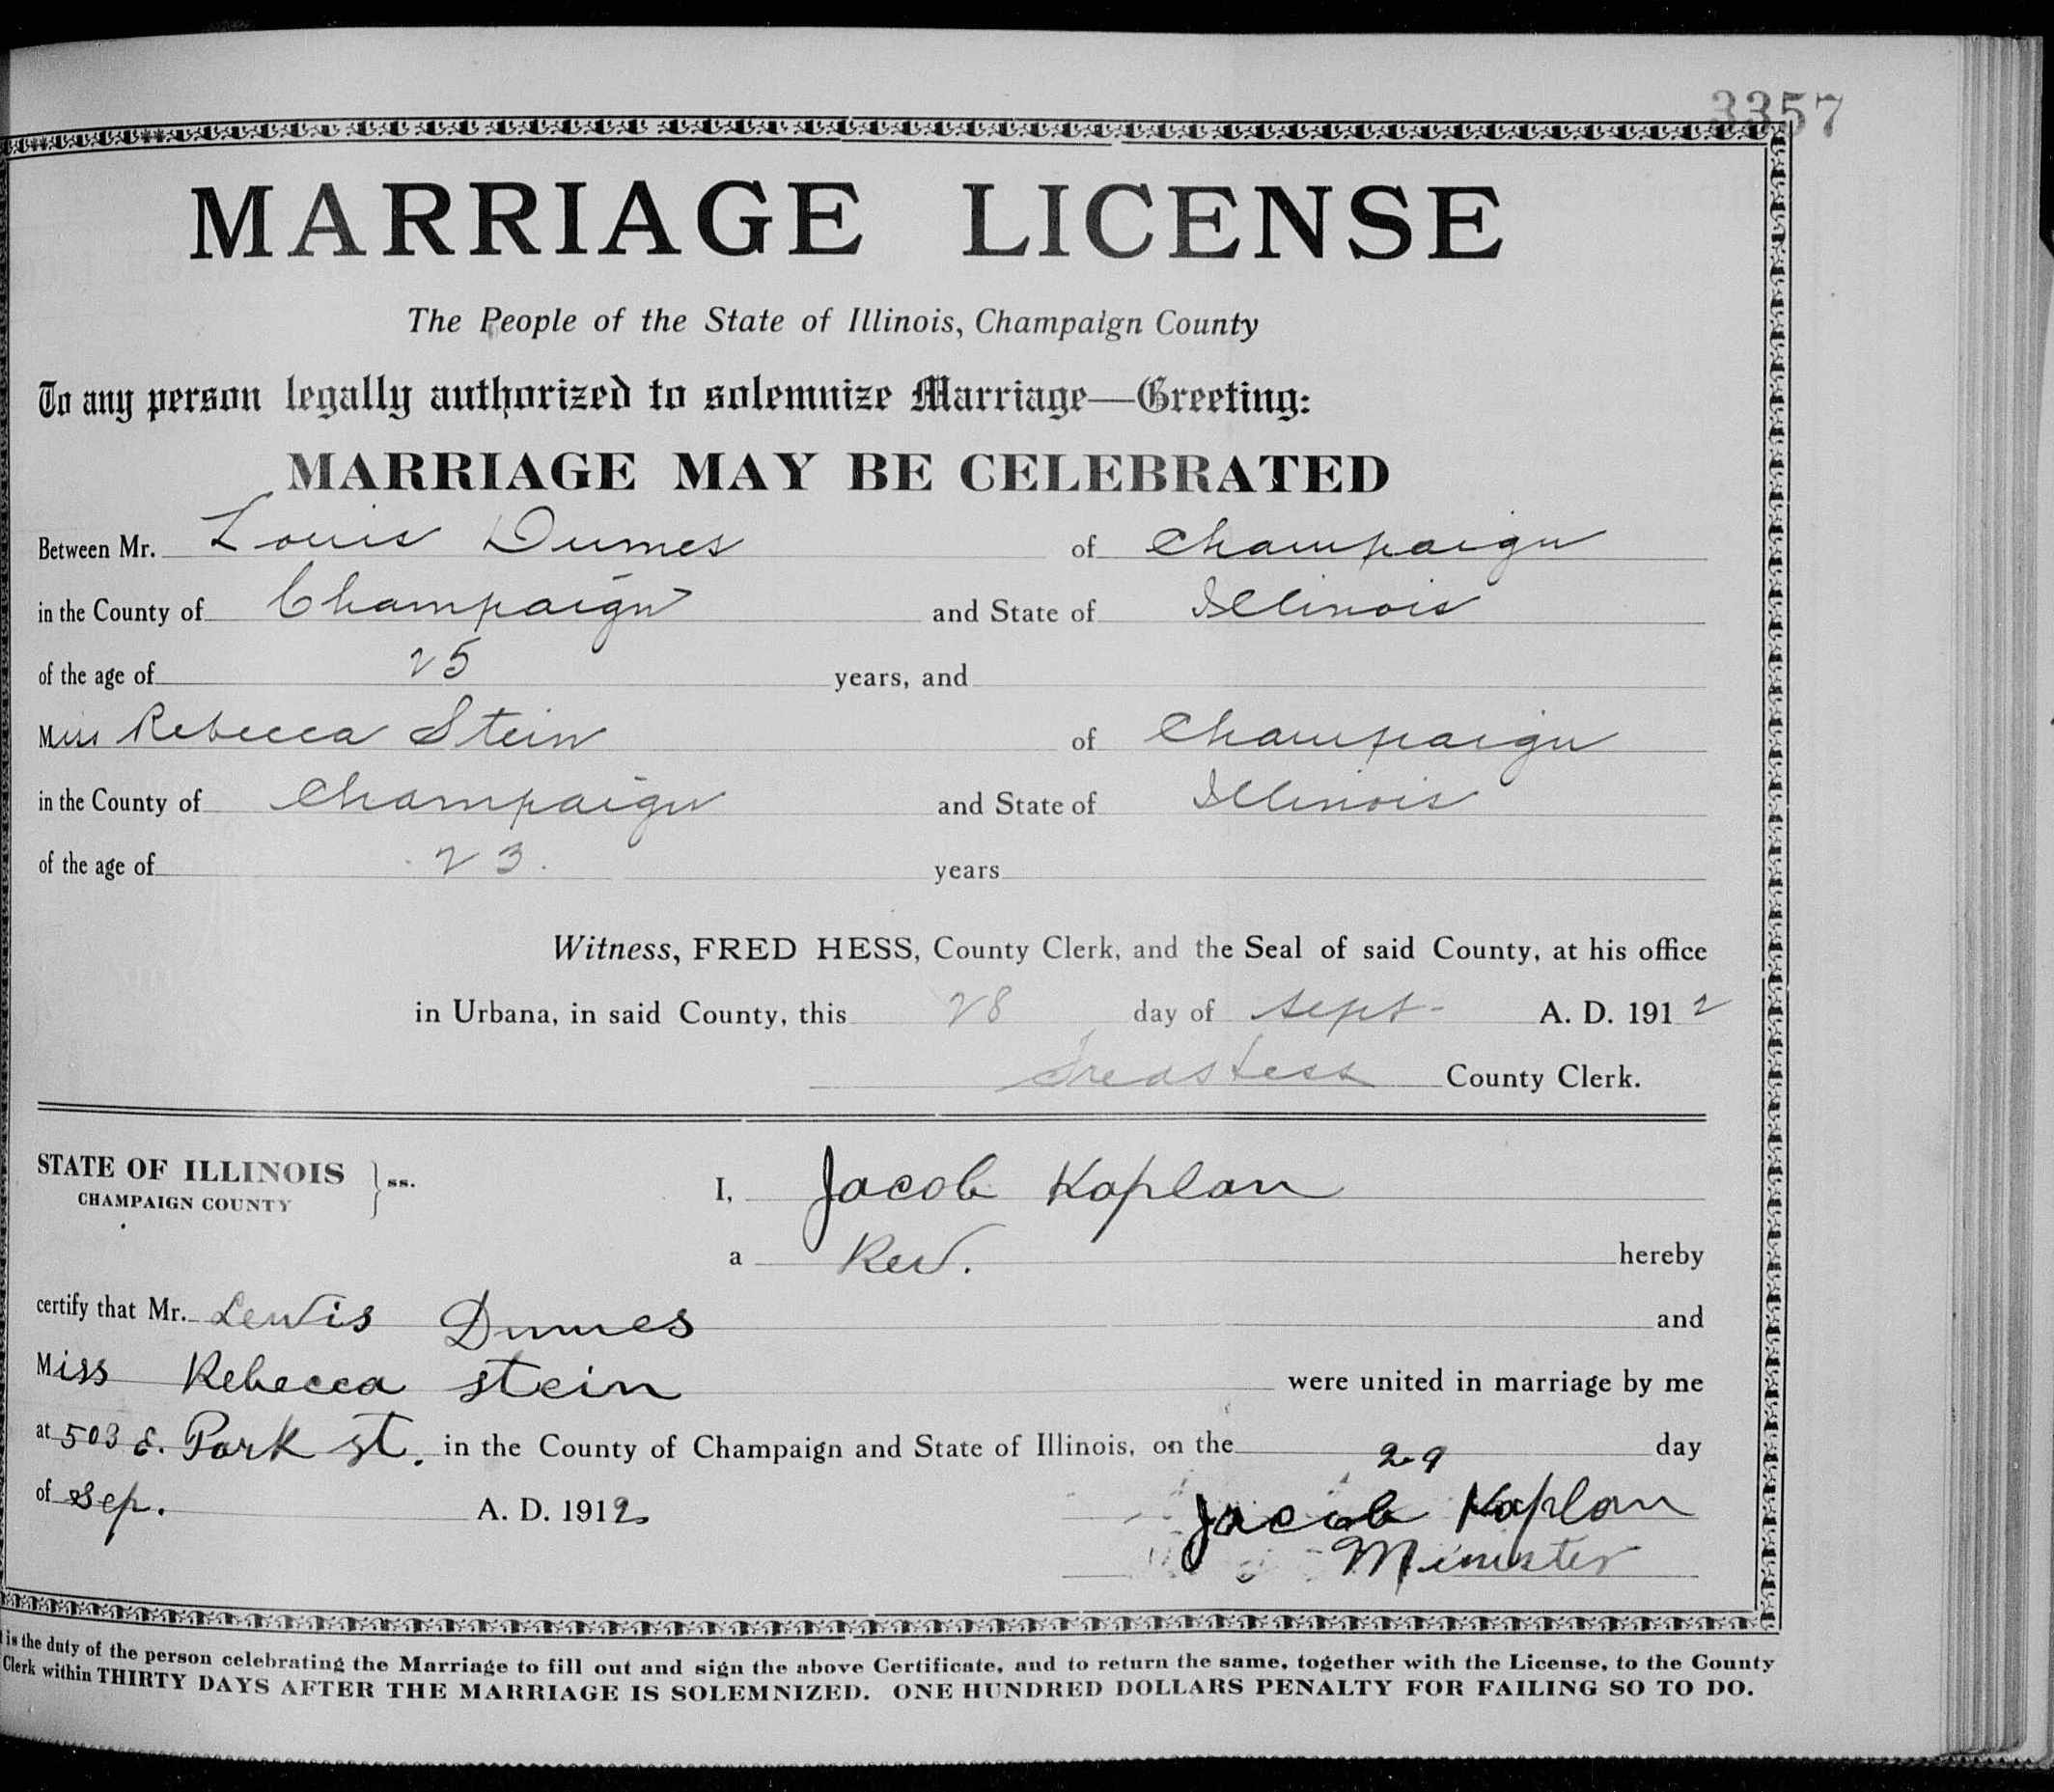 3357
MARRIAGE LICENSE
The People of the State of Illinois, Champaign County
To any person legally authorized to solemnize Marriage—Greeting:
MARRIAGE MAY BE CELEBRATED
Between Mr. Louis Dumes of Champaign
in the County of Champaign and State of Illinois
of the age of 25 years, and
Miss Rebecca Stein of Champaign
in the County of Champaign and State of Illinois
of the age of 23. years
Witness, FRED HESS, County Clerk, and the Seal of said County, at his office
in Urbana, in said County, this 28 day of Sept- A. D. 1912
Fred Hess County Clerk.
STATE OF ILLINOIS } ss. I, Jacob Kaplan
CHAMPAIGN COUNTY
a Rev. hereby
certify that Mr. Lewis Dumes and
Miss Rebecca Stein were united in marriage by me
at 503 E. Park St. in the County of Champaign and State of Illinois, on the 29 day
of Sep. A. D. 1912
Jacob Kaplan
Minister
is the duty of the person celebrating the Marriage to fill out and sign the above Certificate, and to return the same, together with the License, to the County
Clerk within THIRTY DAYS AFTER THE MARRIAGE IS SOLEMNIZED. ONE HUNDRED DOLLARS PENALTY FOR FAILING SO TO DO.